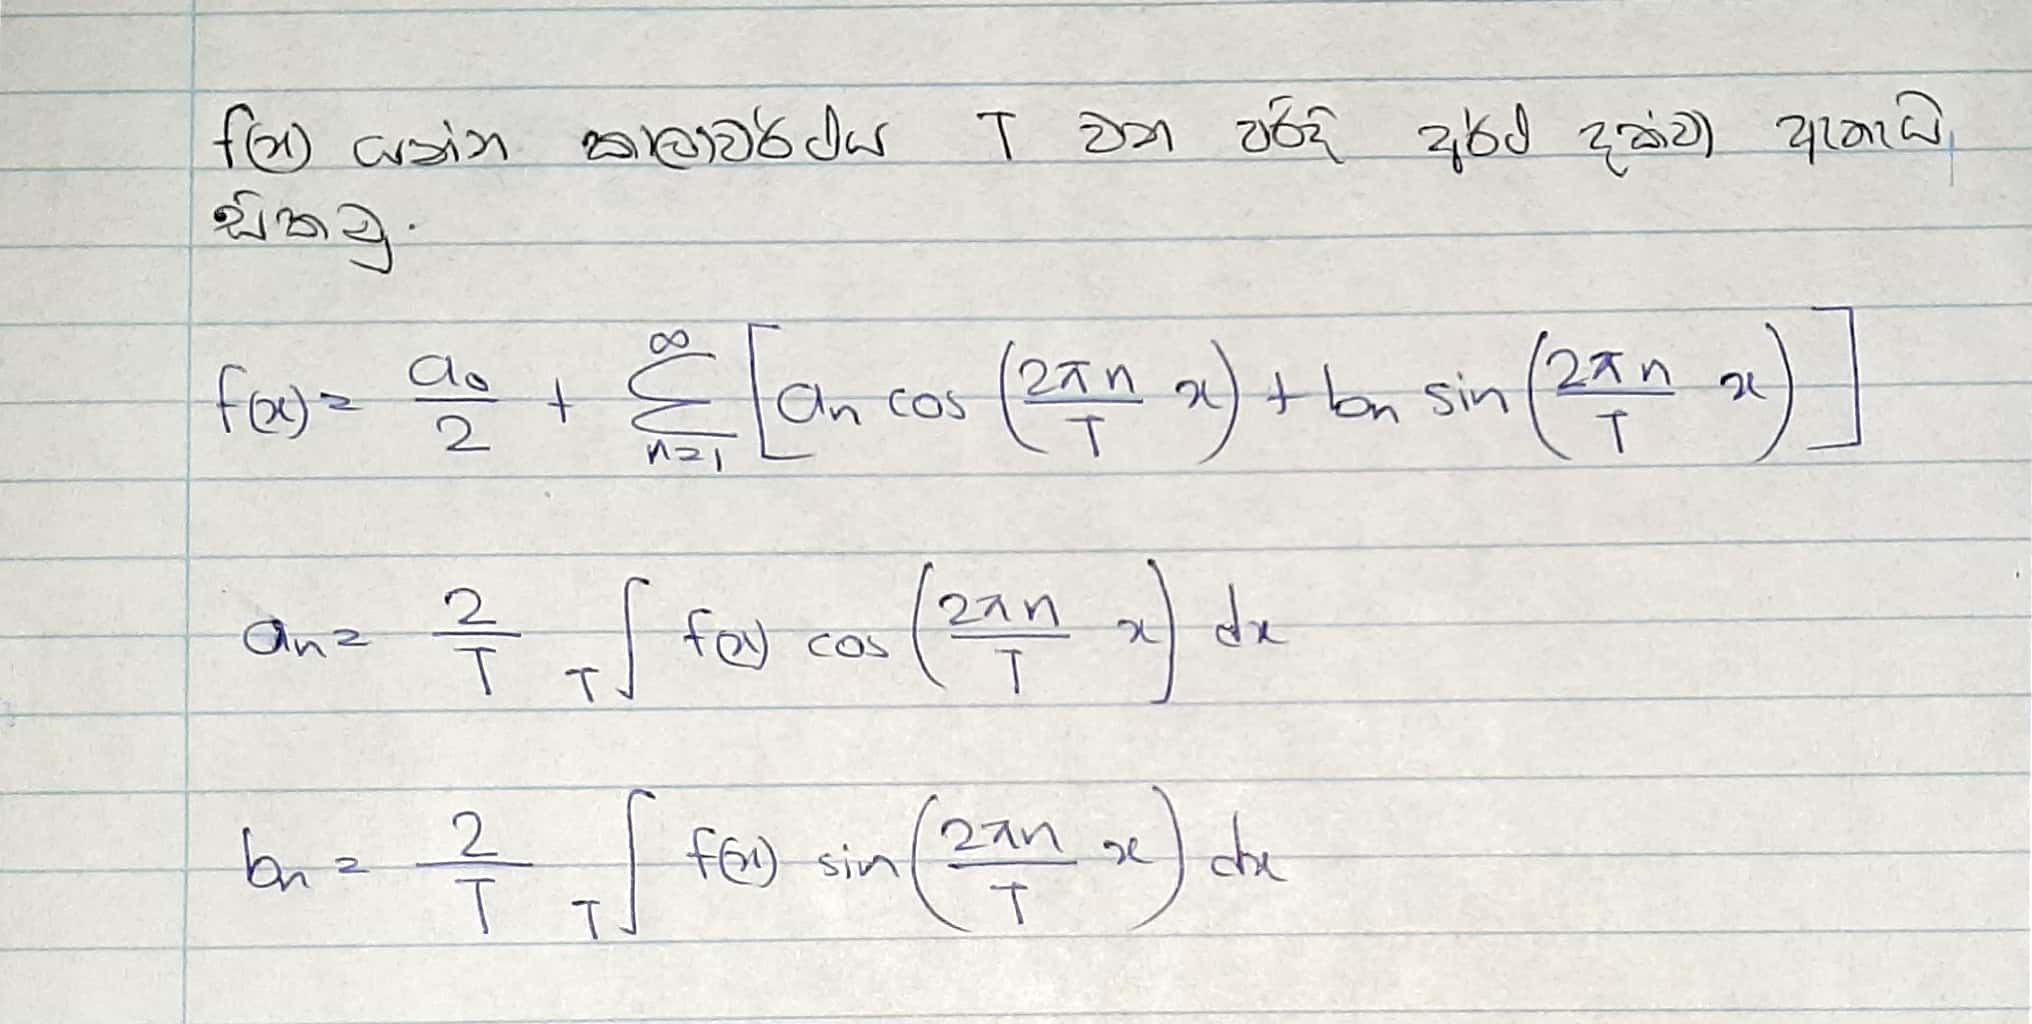 f(x) යන්න කාලාවර්ථය T වන පරිදි අර්ථ දක්වා ඇතැයි
සිතමු.
f(x) = a₀/2 + ∑_{n=1}^{∞} [an cos (2πn/T x) + bn sin (2πn/T x)]
an = 2/T ∫_T f(x) cos (2πn/T x) dx
bn = 2/T ∫_T f(x) sin (2πn/T x) dx